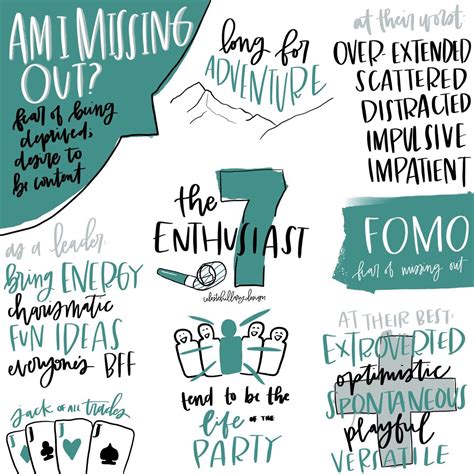 AM I MISSING
OUT?
fear of being
deprived;
desire to
be content
long for
ADVENTURE
at their worst:
OVER-EXTENDED
SCATTERED
DISTRACTED
IMPULSIVE
IMPATIENT
the
7
ENTHUSIAST
FOMO
fear of missing out
as a leader:
bring ENERGY
charismatic
FUN IDEAS
everyone's BFF
tend to be the
life OF THE
PARTY
AT THEIR BEST:
EXTROVERTED
optimistic
SPONTANEOUS
playful
VERSATILE
jack OF ALL trades
J J J J